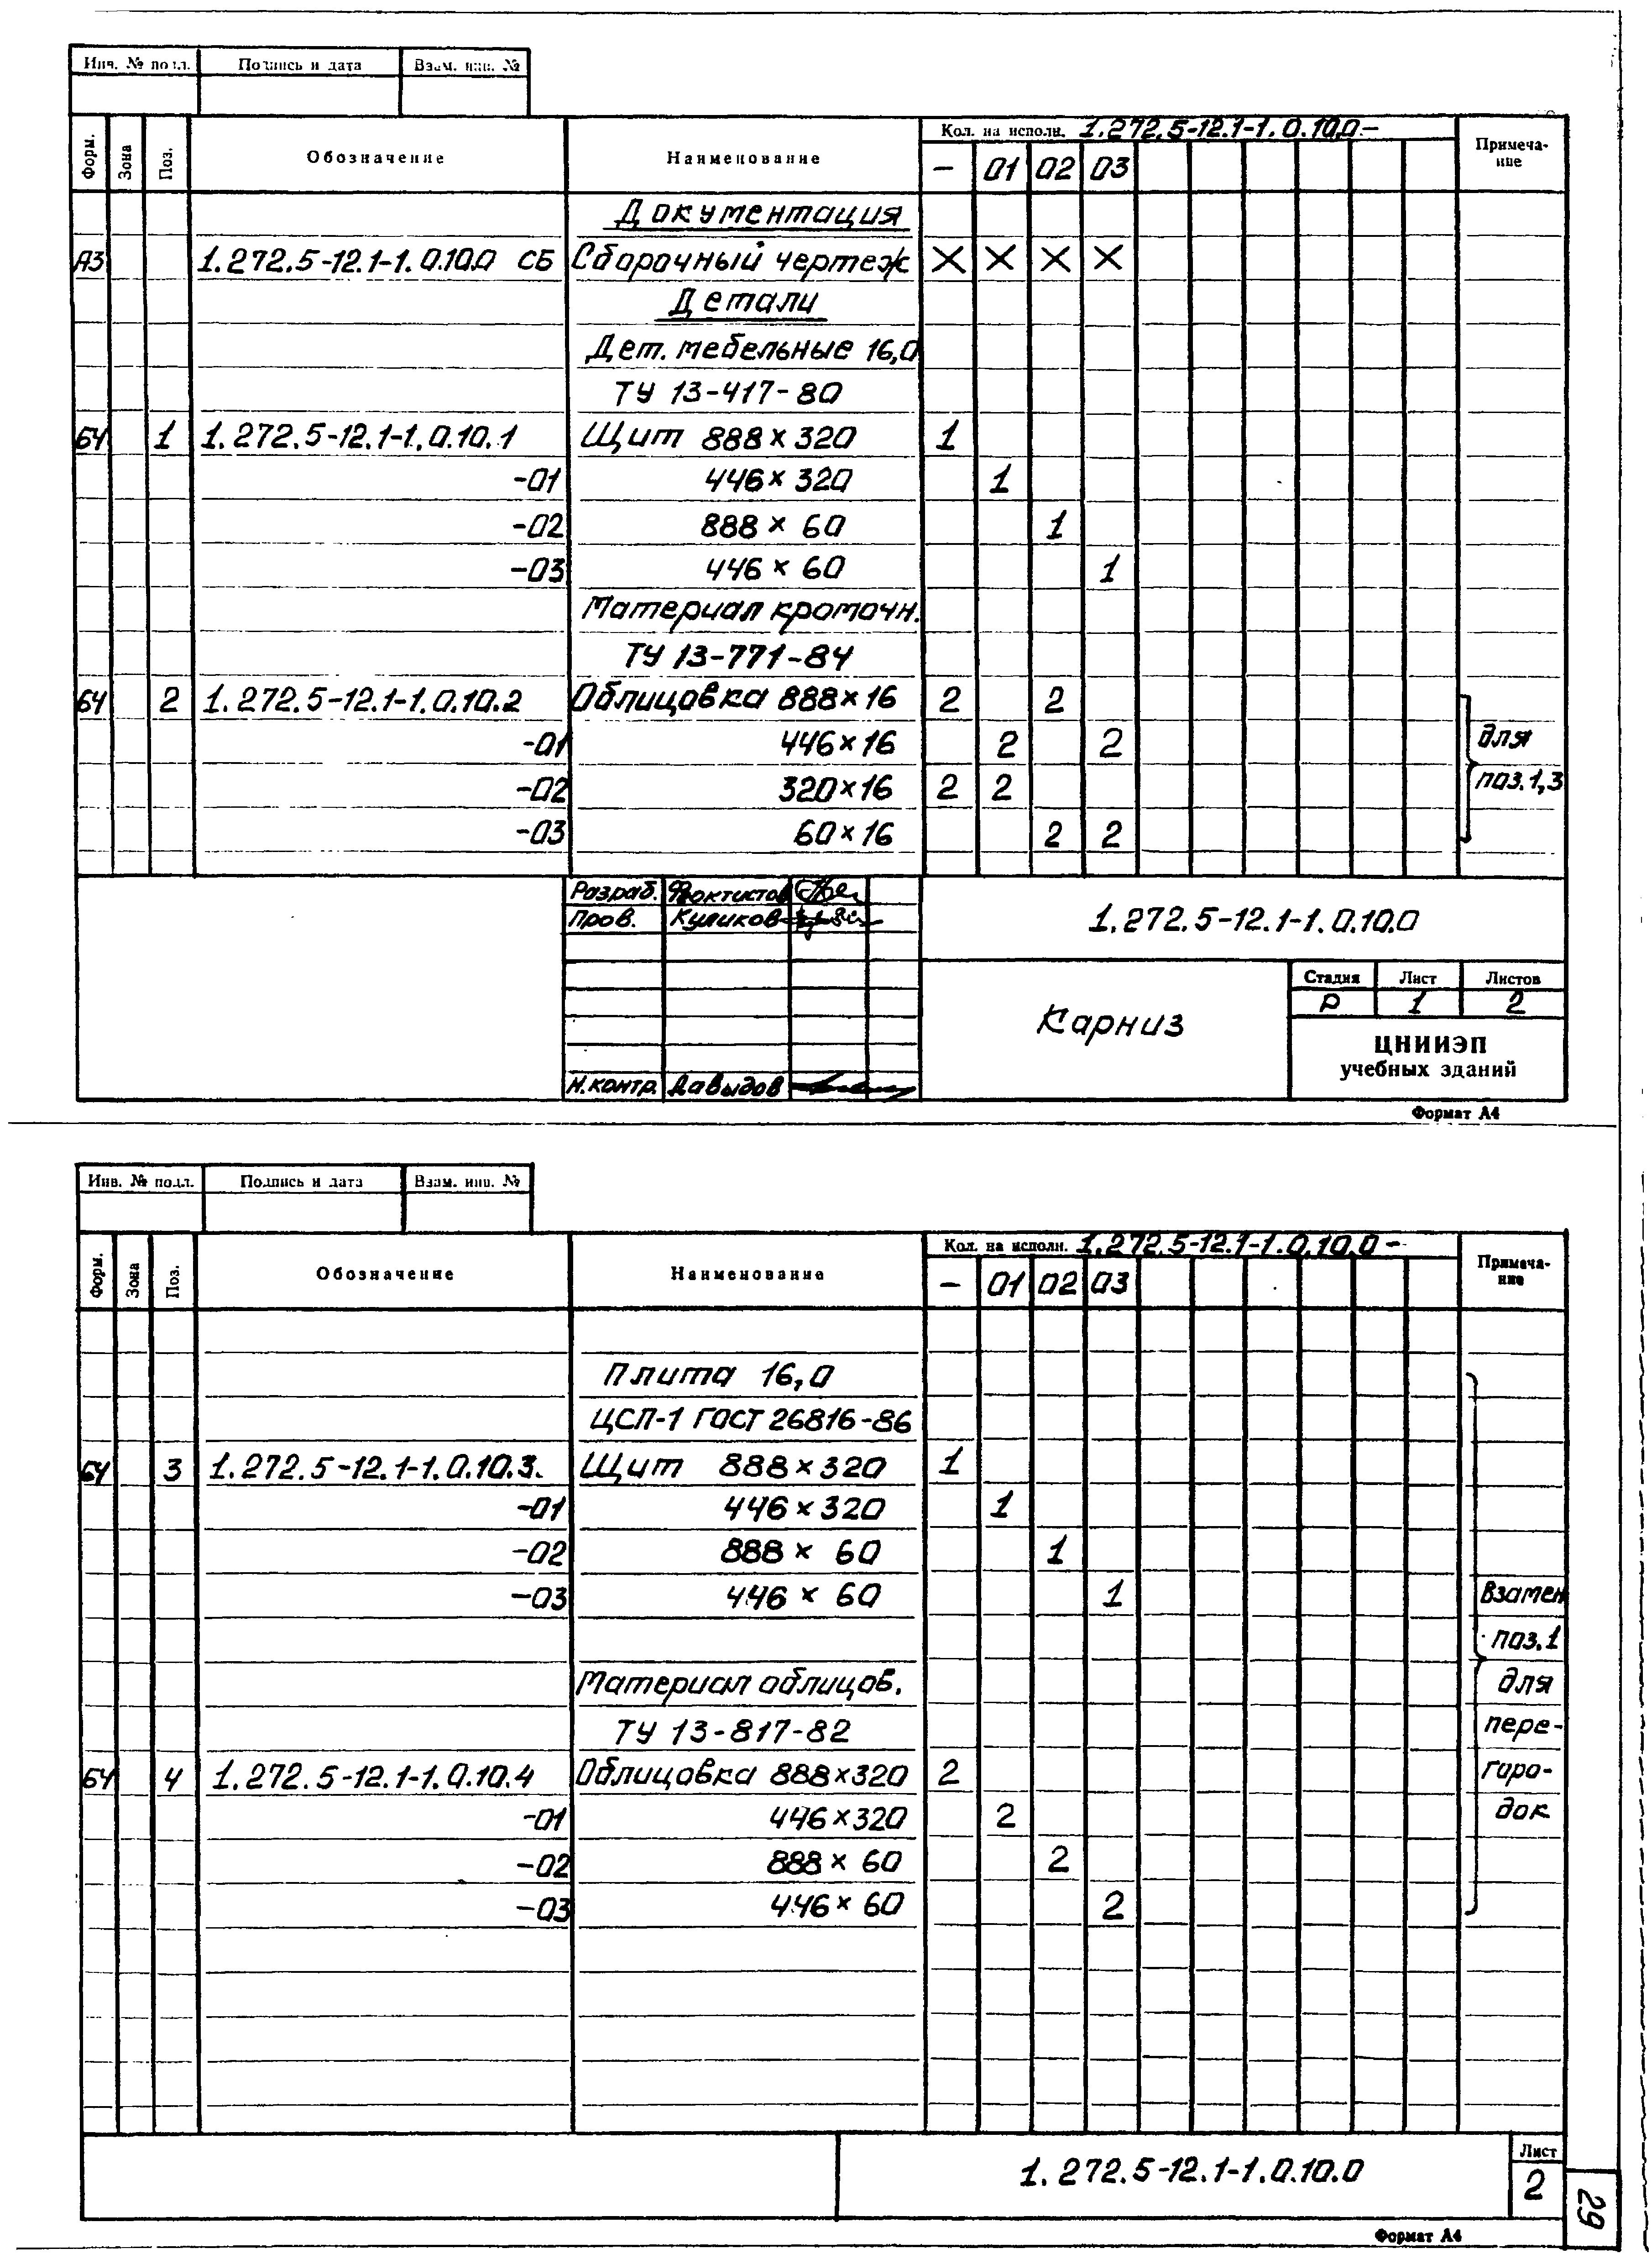 Инв. № подл. Подпись и дата Взам. инв. №
Форм. Зона Поз. Обозначение Наименование Кол. на исполн. 1.272.5-12.1-1.0.10.0- Примеча-
ние
- 01 02 03
Документация
А3 1.272.5-12.1-1.0.10.0 СБ Сборочный чертеж X X X X
Детали
Дет. мебельные 16,0
ТУ 13-417-80
БЧ 1 1.272.5-12.1-1.0.10.1 Щит 888×320 1
-01 446×320 1
-02 888×60 1
-03 446×60 1
Материал кромочн.
ТУ 13-771-84
БЧ 2 1.272.5-12.1-1.0.10.2 Облицовка 888×16 2 2
-01 446×16 2 2 для
-02 320×16 2 2 поз.1,3
-03 60×16 2 2
Разраб. Феоктистов
Пров. Куликов
1.272.5-12.1-1.0.10.0
Карниз
Стадия Лист Листов
Р 1 2
ЦНИИЭП
учебных зданий
Н.контр. Давыдов
Формат А4
Инв. № подл. Подпись и дата Взам. инв. №
Форм. Зона Поз. Обозначение Наименование Кол. на исполн. 1.272.5-12.1-1.0.10.0- Примеча-
ние
- 01 02 03
Плита 16,0
ЦСП-1 ГОСТ 26816-86
БЧ 3 1.272.5-12.1-1.0.10.3. Щит 888×320 1
-01 446×320 1
-02 888×60 1
-03 446×60 1 Взамен
поз.1
Материал облицов. для
ТУ 13-817-82 пере-
БЧ 4 1.272.5-12.1-1.0.10.4 Облицовка 888×320 2 горо-
-01 446×320 2 док
-02 888×60 2
-03 446×60 2
1.272.5-12.1-1.0.10.0
Лист
2
29
Формат А4